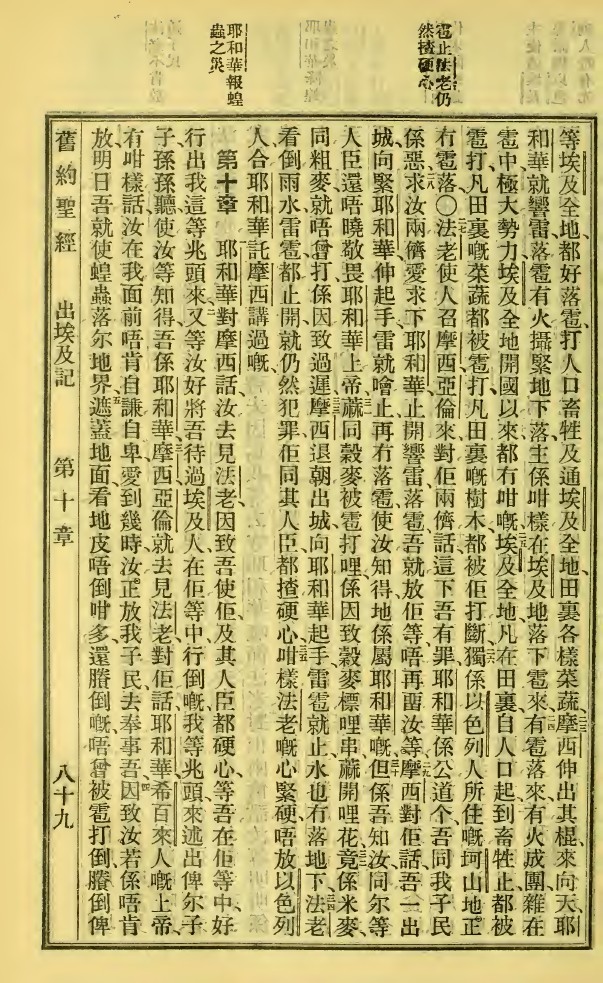 雹止法老仍
然揸硬心
耶和華報蝗
蟲之災
等埃及全地都好落雹、打人口畜牲及通埃及全地田裏各樣菜蔬、摩西伸出其棍來向天、耶
和華就響雷落雹、有火攝緊地下落、主係咁樣在埃及地落下雹來、有雹落來、有火成團雜在
雹中、極大勢力、埃及全地開國以來都冇咁嘅、埃及全地、凡在田裏自人口起到畜牲止、都被
雹打、凡田裏嘅菜蔬都被雹打、凡田裏嘅樹木都被佢打斷、獨係以色列人所住嘅坷山地正
冇雹落、〇法老使人召摩西亞倫來對佢兩儕話、這下吾有罪、耶和華係公道个、吾同我子民
係惡、求汝兩儕愛求下耶和華、止開響雷落雹、吾就放佢等、唔再畱汝等、摩西對佢話、吾一出
城、向緊耶和華伸起手、雷就噲止、再冇落雹、使汝知得地係屬耶和華嘅、但係吾知汝同尔等
人臣還唔曉敬畏耶和華上帝、蔴同穀麥被雹打哩、係因致穀麥標哩串、蔴開哩花、竟係米麥
同粗麥就唔曾打、係因致過遲、摩西退朝出城、向耶和華起手、雷雹就止、水也冇落地下、法老
看倒雨水雷雹都止開、就仍然犯罪、佢同其人臣都揸硬心、咁樣法老嘅心緊硬、唔放以色列
人、合耶和華託摩西講過嘅、
第十章 耶和華對摩西話、汝去見法老、因致吾使佢及其人臣都硬心、等吾在佢等中、好
行出我這等兆頭來、又等汝好將吾待過埃及人、在佢等中行倒嘅我等兆頭來述出俾尔子
子孫孫聽、使汝等知得吾係耶和華、摩西亞倫就去見法老、對佢話、耶和華希百來人嘅上帝、
有咁樣話、汝在我面前唔肯自謙自卑、愛到幾時、汝正放我子民去奉事吾、因致汝若係唔肯
放、明日吾就使蝗蟲落尔地界、遮蓋地面、看地皮唔倒、咁多還賸倒嘅、唔曾被雹打倒賸倒俾
舊約聖經 出埃及記 第十章 八十九